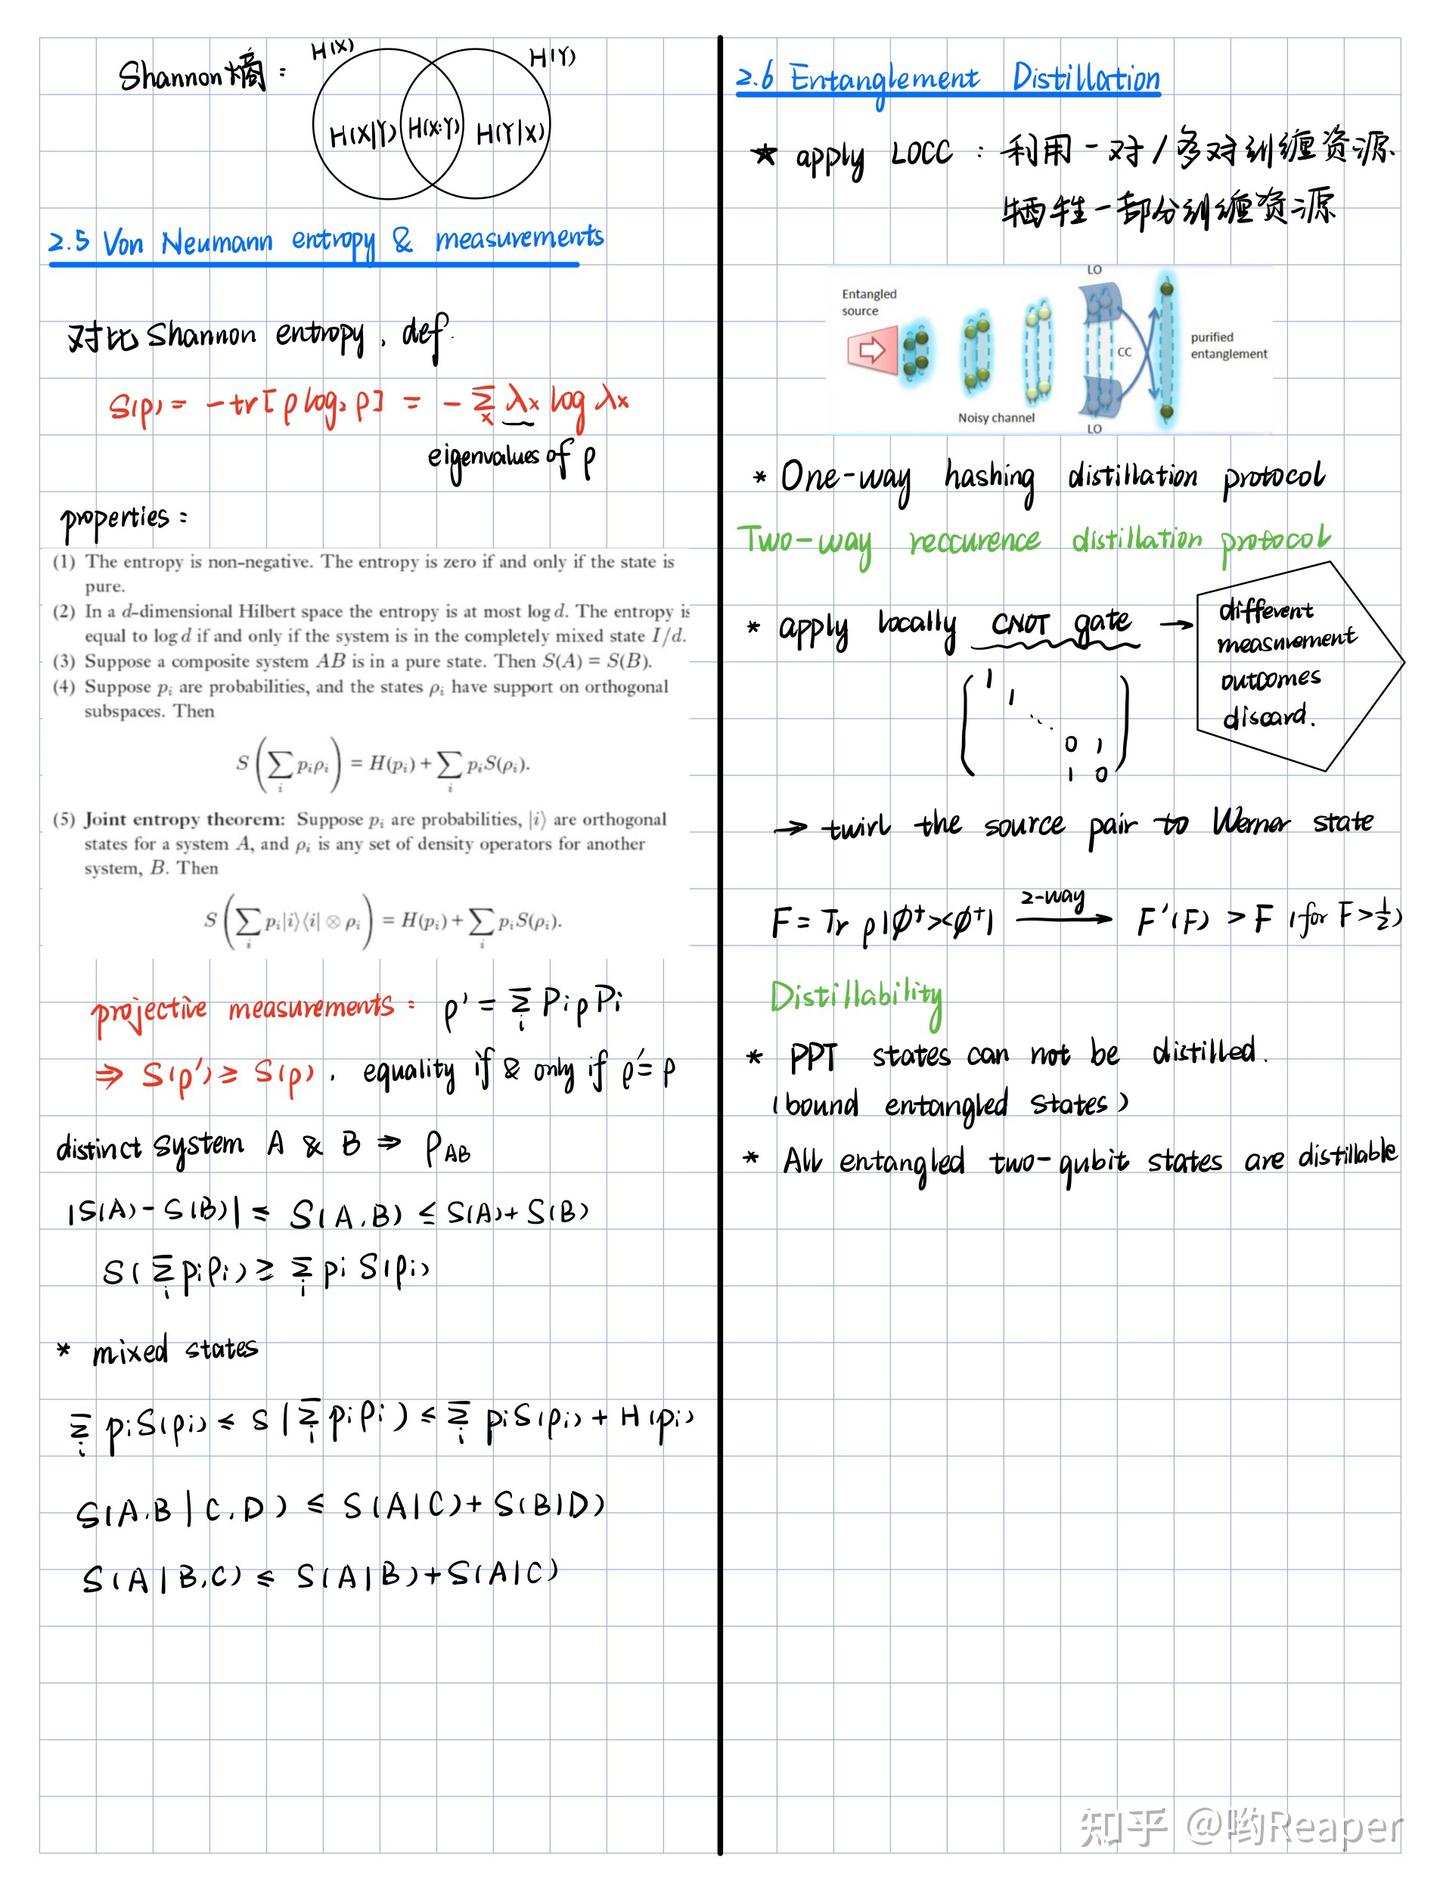 Shannon熵：
H(X)
H(Y)
H(X|Y)
H(X:Y)
H(Y|X)
2.5 Von Neumann entropy & measurements
对比 Shannon entropy, def.
S(ρ) = -tr[ρ log₂ ρ] = - Σₓ λₓ log λₓ
eigenvalues of ρ
properties:
(1) The entropy is non-negative. The entropy is zero if and only if the state is
pure.
(2) In a d-dimensional Hilbert space the entropy is at most log d. The entropy is
equal to log d if and only if the system is in the completely mixed state I/d.
(3) Suppose a composite system AB is in a pure state. Then S(A) = S(B).
(4) Suppose pᵢ are probabilities, and the states ρᵢ have support on orthogonal
subspaces. Then
S(Σᵢ pᵢρᵢ) = H(pᵢ) + Σᵢ pᵢS(ρᵢ).
(5) Joint entropy theorem: Suppose pᵢ are probabilities, |i⟩ are orthogonal
states for a system A, and ρᵢ is any set of density operators for another
system, B. Then
S(Σᵢ pᵢ|i⟩⟨i| ⊗ ρᵢ) = H(pᵢ) + Σᵢ pᵢS(ρᵢ).
projective measurements: ρ' = Σᵢ Pᵢ ρ Pᵢ
⇒ S(ρ') ≥ S(ρ). equality if & only if ρ' = ρ
distinct system A & B ⇒ ρ_AB
|S(A) - S(B)| ≤ S(A,B) ≤ S(A) + S(B)
S(Σᵢ pᵢρᵢ) ≥ Σᵢ pᵢ S(ρᵢ)
* mixed states
Σᵢ pᵢS(ρᵢ) ≤ S(Σᵢ pᵢρᵢ) ≤ Σᵢ pᵢS(ρᵢ) + H(pᵢ)
S(A,B|C,D) ≤ S(A|C) + S(B|D)
S(A|B,C) ≤ S(A|B) + S(A|C)
2.6 Entanglement Distillation
★ apply LOCC : 利用一对/多对纠缠资源.
牺牲一部分纠缠资源
Entangled
source
Noisy channel
LO
CC
LO
purified
entanglement
* One-way hashing distillation protocol
Two-way reccurence distillation protocol
* apply locally CNOT gate →
different
measurement
outcomes
discard.
1
1
⋱
0 1
1 0
→ twirl the source pair to Werner state
F = Tr ρ|Φ⁺><Φ⁺| 2-way → F'(F) > F (for F > 1/2)
Distillability
* PPT states can not be distilled.
(bound entangled states)
* All entangled two-qubit states are distillable
知乎 @哟Reaper